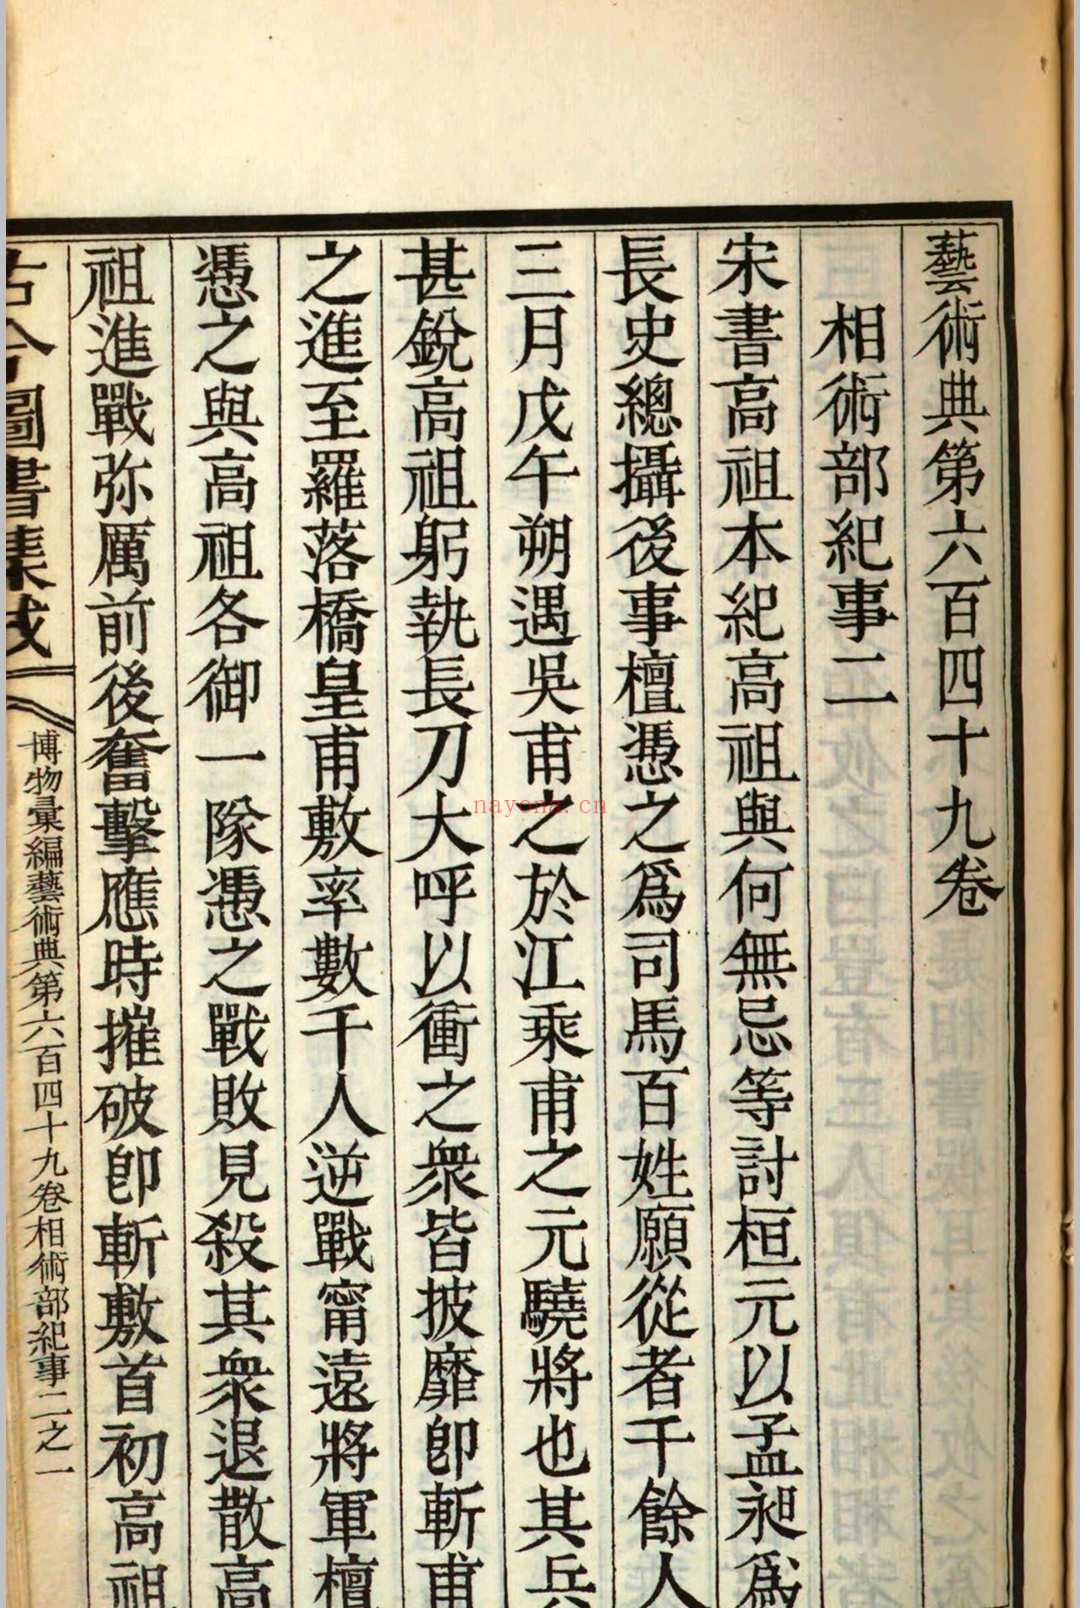 藝術典第六百四十九卷
相術部紀事二
宋書高祖本紀高祖與何無忌等討桓元以孟昶爲
長史總攝後事檀憑之爲司馬百姓願從者千餘人
三月戊午朔遇吳甫之於江乘甫之元驍將也其兵
甚銳高祖躬執長刀大呼以衝之衆皆披靡卽斬甫
之進至羅落橋皇甫敷率數千人逆戰甯遠將軍檀
憑之與高祖各御一隊憑之戰敗見殺其衆退散高
祖進戰弥厲前後奮擊應時摧破卽斬敷首初高祖
古今圖書集成
博物彙編藝術典第六百四十九卷相術部紀事二之一
nayona.cn